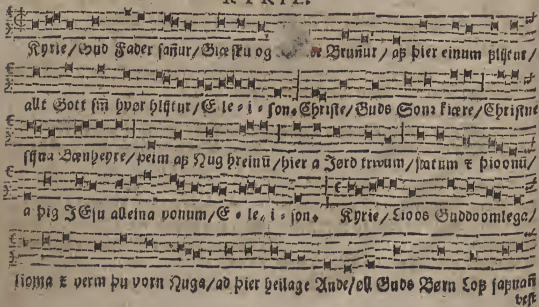 KYRIE.
Kyrie/Gud Fader sañur/Giæsku og Bruñur/ aþ þier einum þlijtur/
allt Gott sm̃ hvor hlijtur/E-le-i-son. Christe/Guds Son kiære/Christne
sijna Bænheyre/þeim aþ Hug hreinũ/hier a Jord trwum/ stætum ⁊ þioonũ/
a þig JEsu alleina vonum/E-le-i-son. Kyrie/Lioos Guddoomlega/
lioma ⁊ verm þu vorn Huga/ad þier heilage Ande/öll Guds Børn Loþ saþnañ
vest